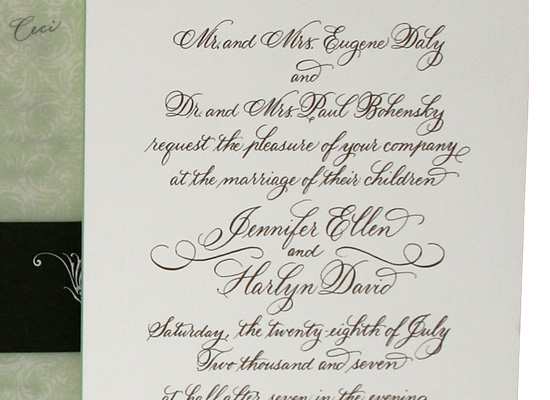 Ceci
Mr. and Mrs. Eugene Daly
and
Dr. and Mrs. Paul Bohensky
request the pleasure of your company
at the marriage of their children
Jennifer Ellen
and
Harlyn David
Saturday, the twenty-eighth of July
Two thousand and seven
at half after seven in the evening